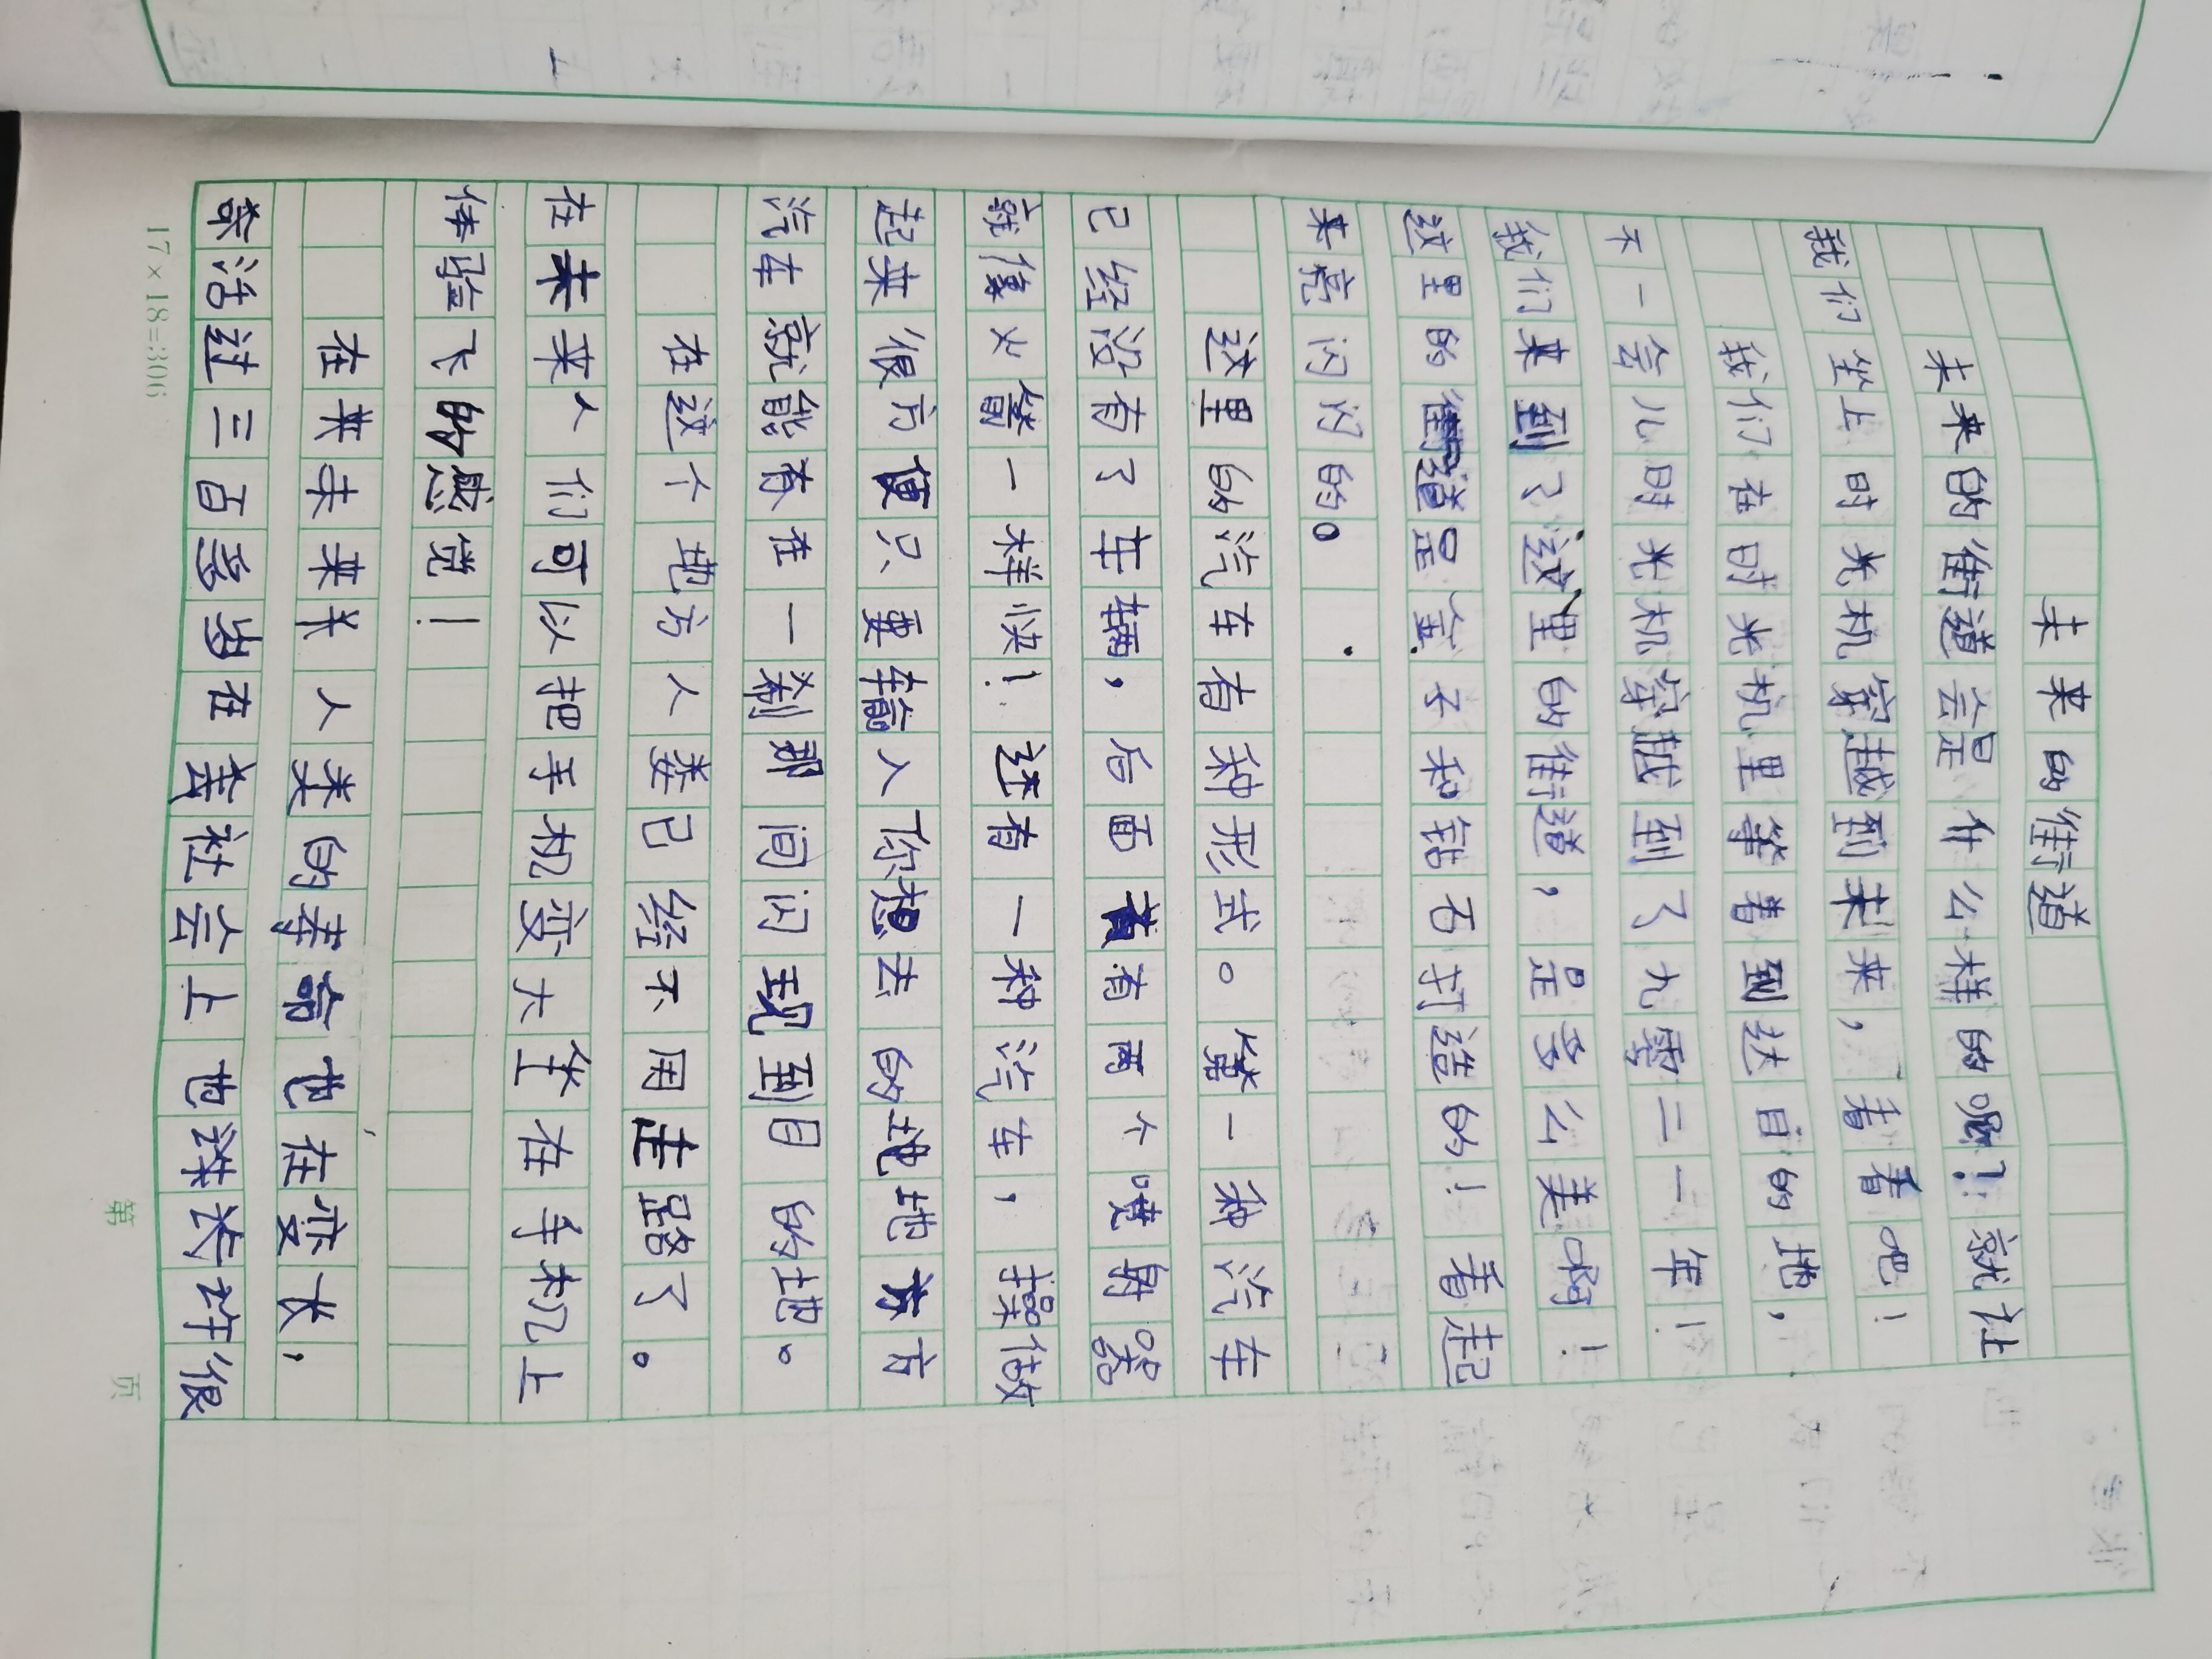 未来的街道
未来的街道会是什么样的呢？就让
我们坐上时光机穿越到未来，看看吧！
我们在时光机里等着到达目的地，
不一会儿时光机穿越到了九零二一年！
我们来到了这里的街道，是多么美啊！
这里的街道是金子和钻石打造的！看起
来亮闪闪的。
这里的汽车有种形式。第一种汽车
已经没有了车辆，后面有两个喷射器
就像火箭一样快！还有一种汽车，操做
起来很方便只要输入你想去的地方
汽车就能春在一刹那间闪现到目的地。
在这个地方人类已经不用走路了。
在未来人们可以把手机变大坐在手机上
体验飞的感觉！
在来未来米人类的寿命也在变长，
奈活过三百多岁在社会上也许很
17×18=306
第 页